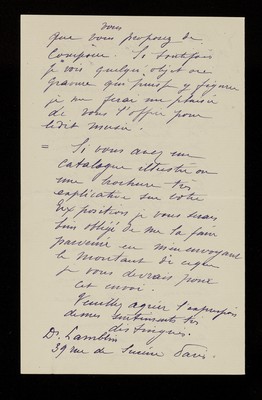 vous
que vous proposez de
composer. Si toutefois
je vois quelque objet ou
gravure qui puisse y figurer
je me ferai un plaisir
de vous l'offrir pour
ledit musée.
= Si vous avez un
catalogue illustré ou
une brochure très
explicative sur votre
Exposition je vous serais
bien obligé de me la faire
parvenir en m'envoyant
le montant de ce que
je vous devrais pour
cet envoi.
Veuillez agréer l'expression
de mes sentiments très
distingués.
Dr Lamblin
39 rue de Paris.